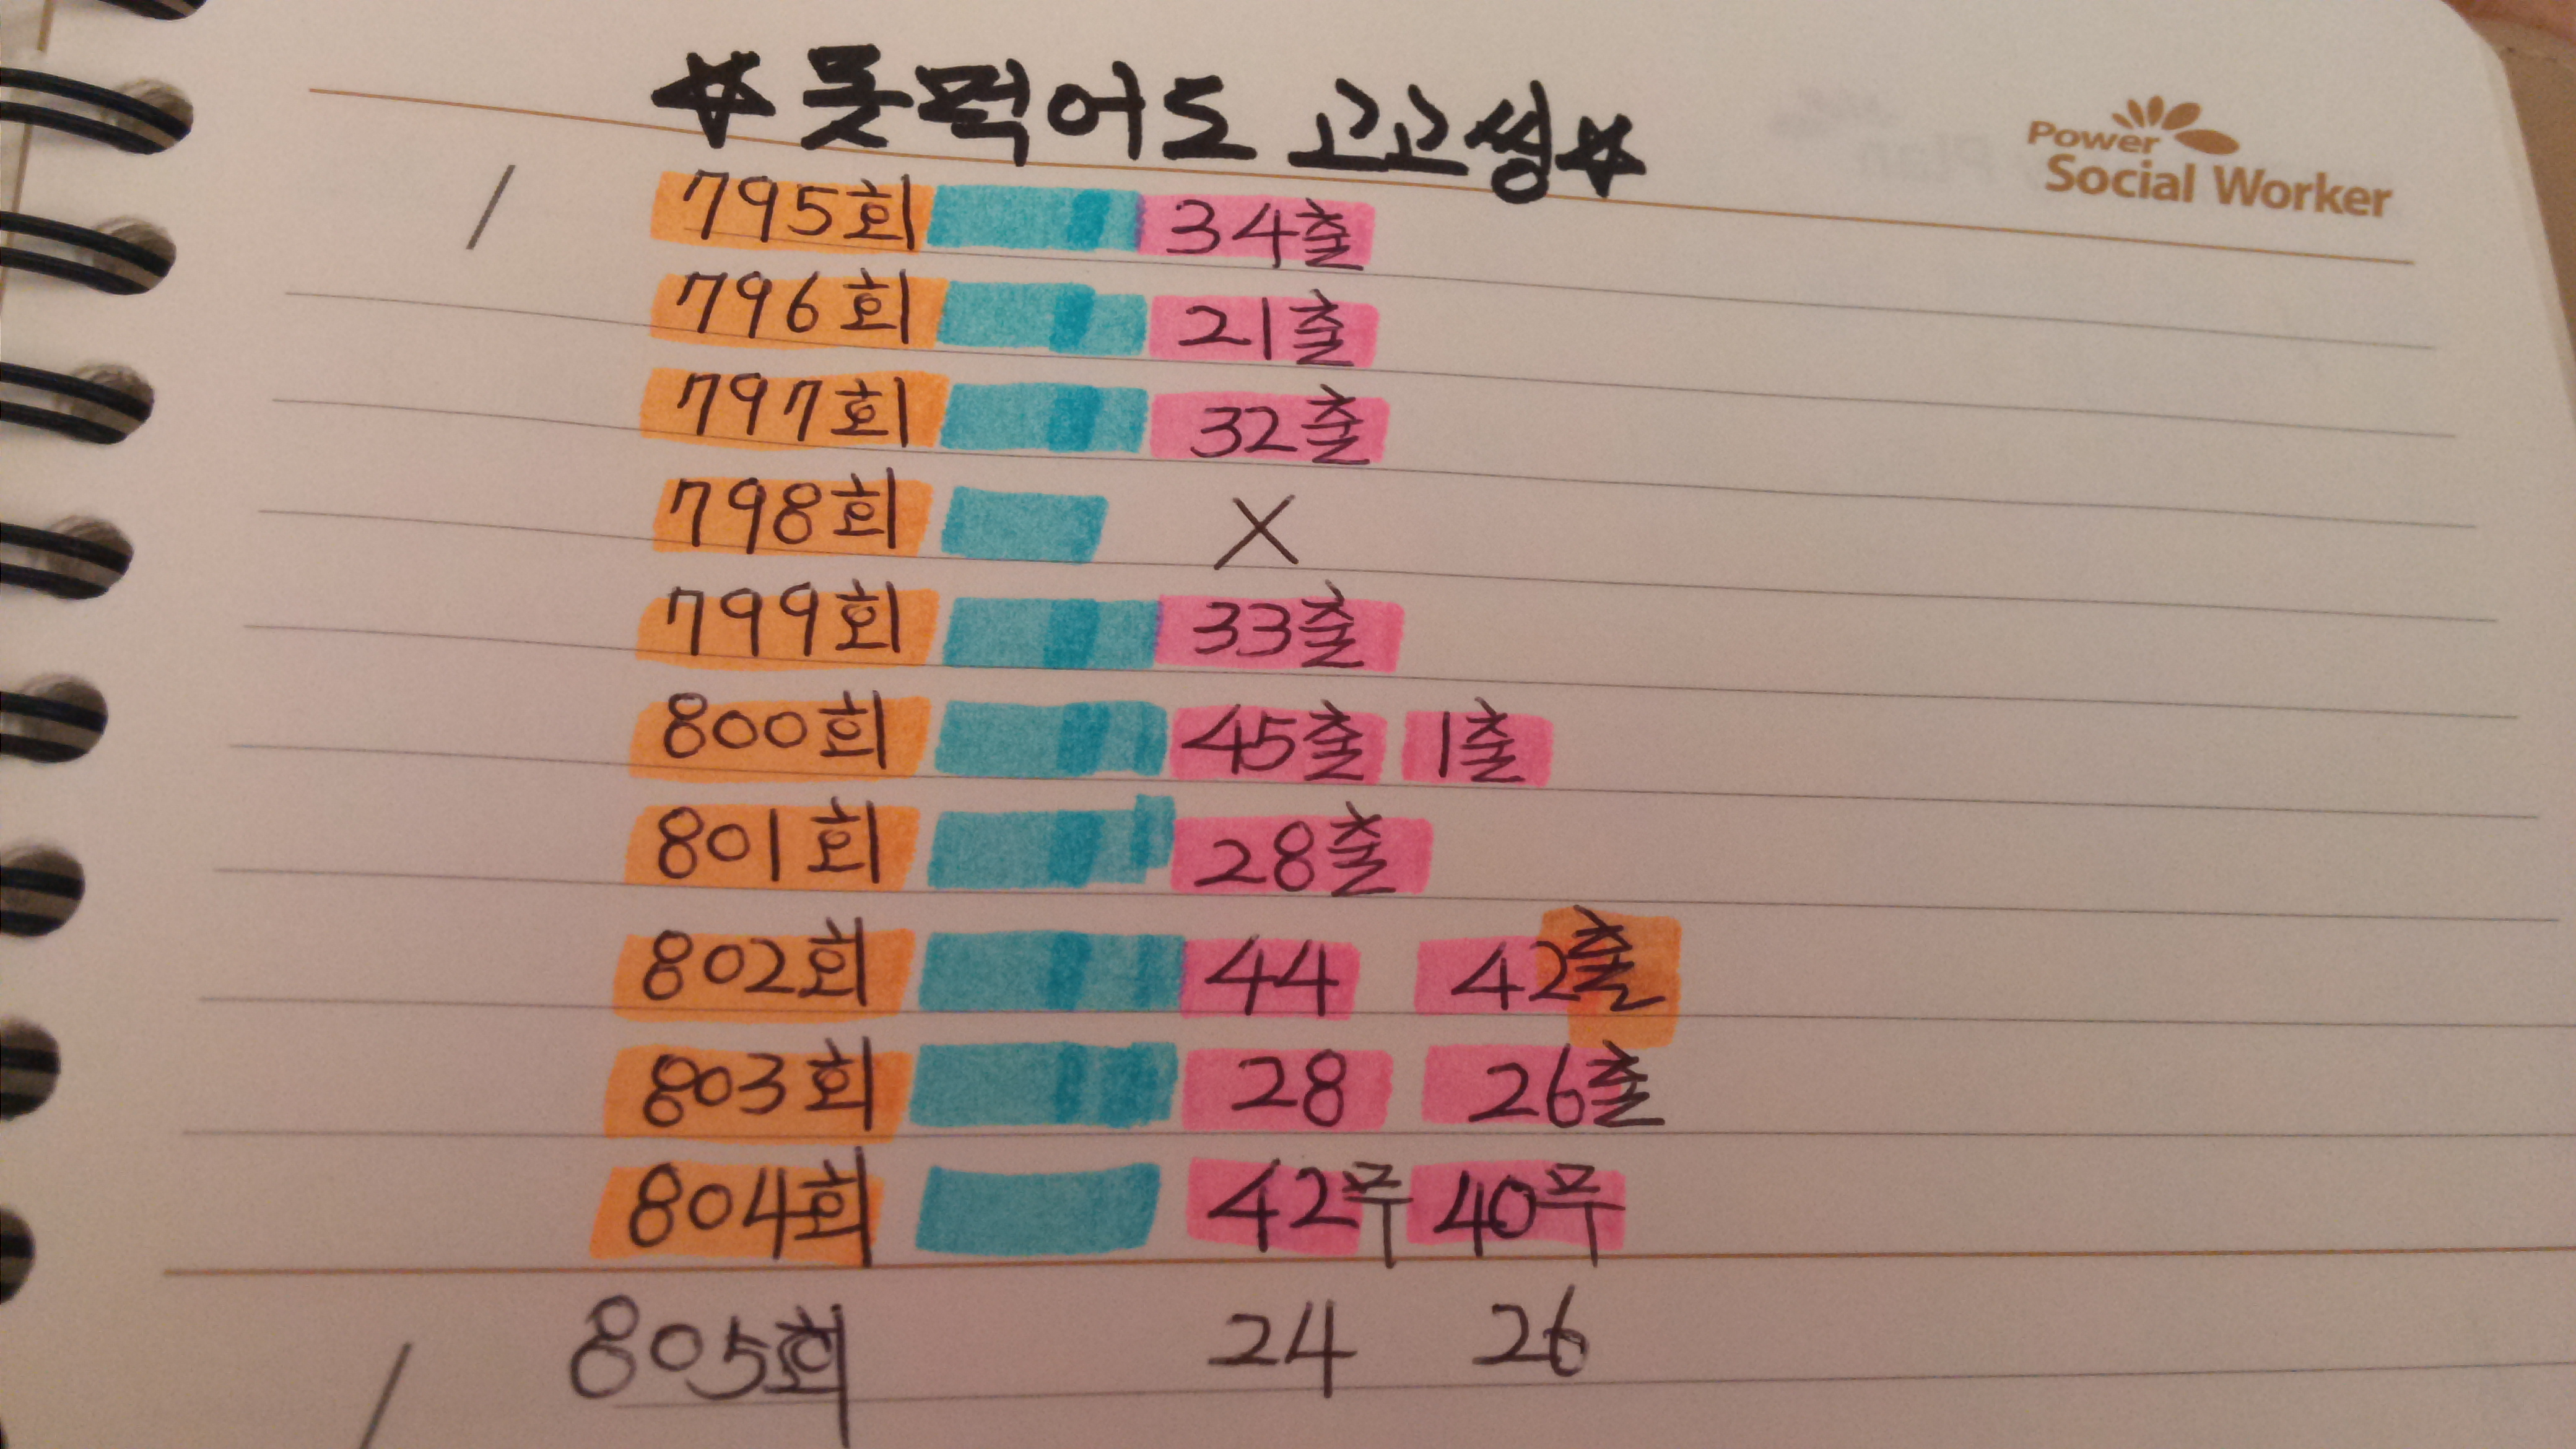 ☆못먹어도 고고씽☆
Power
Social Worker
795회 34출
796회 21출
797회 32출
798회 X
799회 33출
800회 45출 1출
801회 28출
802회 44 42출
803회 28 26출
804회 42무 40무
805회 24 26